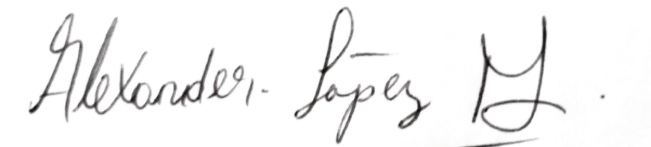 Alexander. López M.